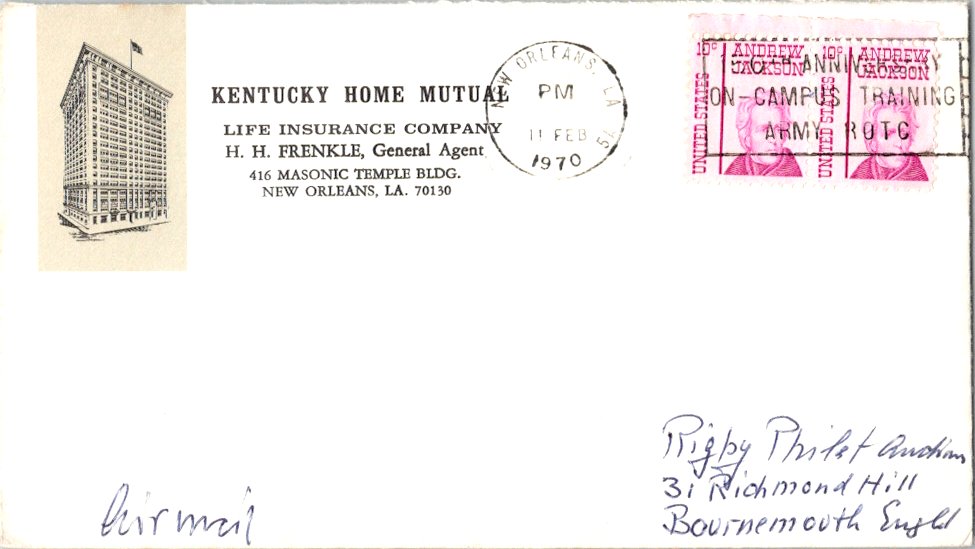 KENTUCKY HOME MUTUAL
LIFE INSURANCE COMPANY
H. H. FRENKLE, General Agent
416 MASONIC TEMPLE BLDG.
NEW ORLEANS, LA. 70130
NEW ORLEANS, LA
PM
11 FEB
1970
10c ANDREW JACKSON
UNITED STATES
10c ANDREW JACKSON
UNITED STATES
ON-CAMPUS TRAINING
ARMY ROTC
Rigby Philat Auction
31 Richmond Hill
Bournemouth Engld
Air mail